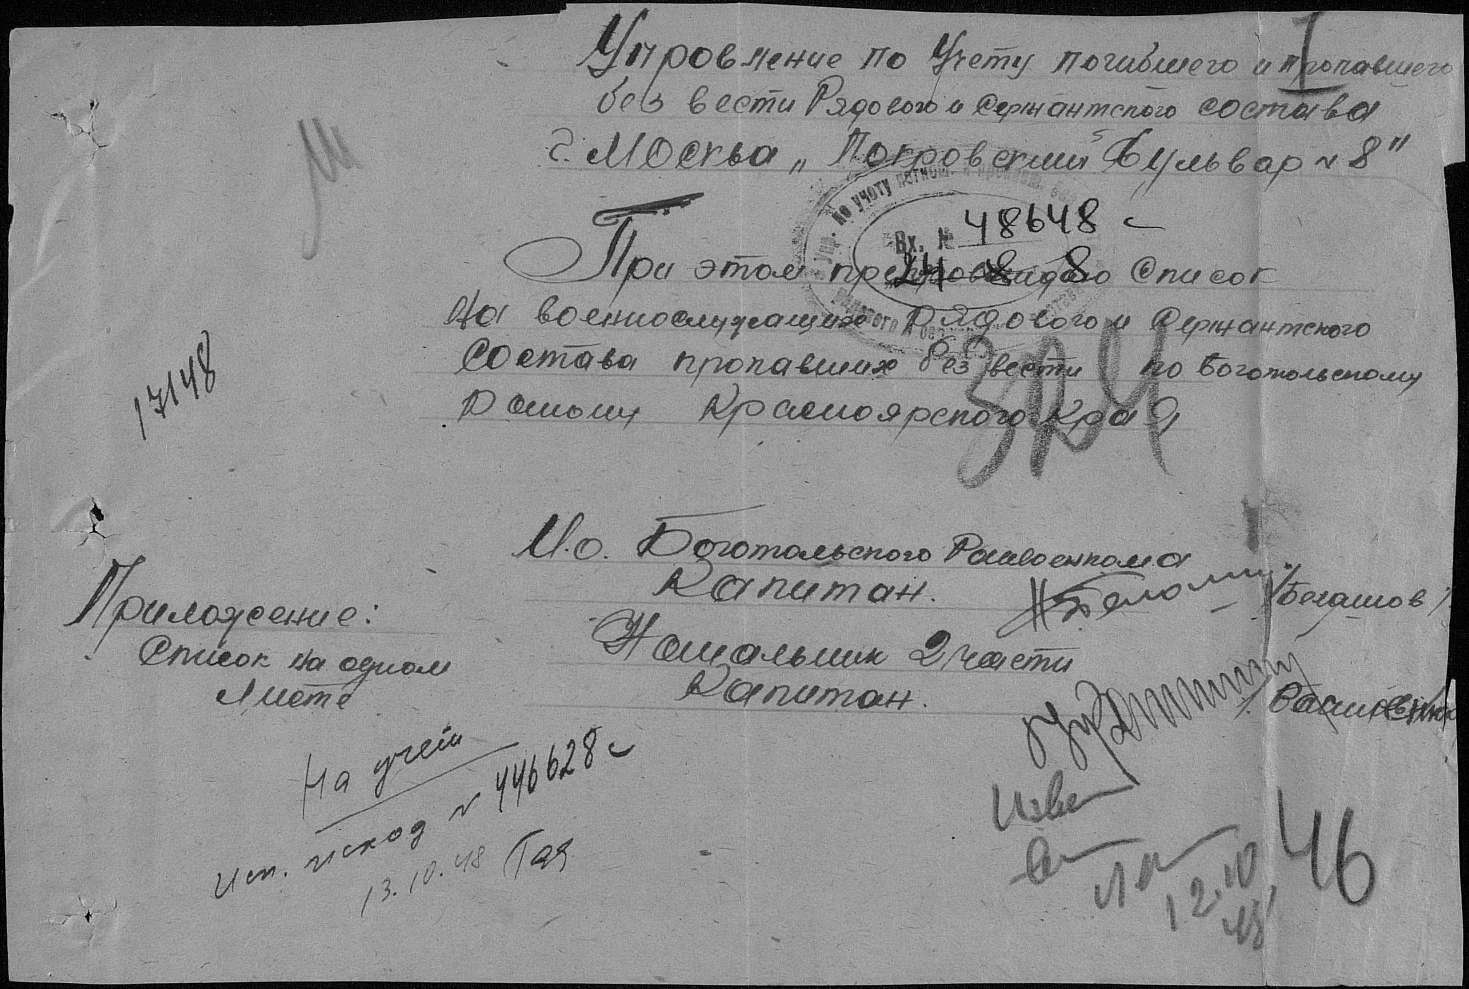 Управление по Учету погибшего и пропавшего
без вести Рядового и Сержантского состава
г. Москва „Покровский Бульвар № 8"
Вх. № 48648
24 8 8
При этом препровождаю Список
на военнослужащих рядового и Сержантского
состава пропавших без вести по Боготольскому
району Красноярского края
17148
И.о. Боготольского Райвоенкома
Капитан.
Приложение:
Список на одном
листе
Начальник 2 части
Капитан.
На учет
исход № 446628
13.10.48
12.10
48
46